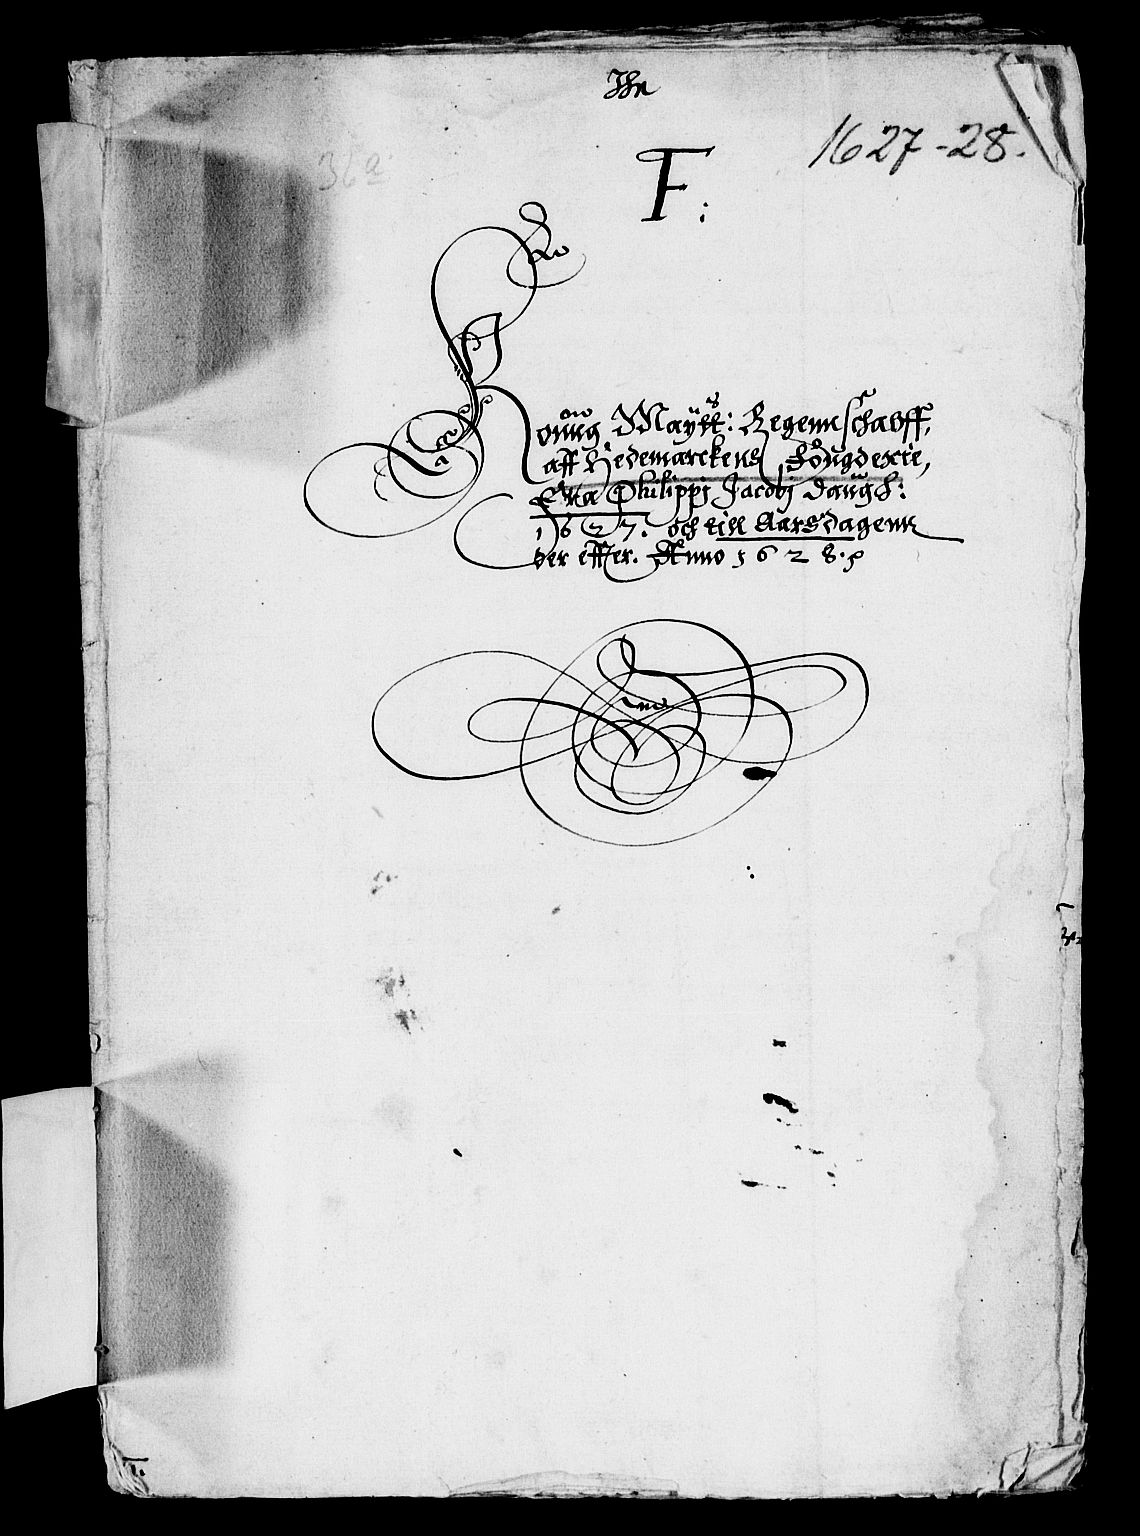 Ihs
1627-28.
36a
F:
Konng Maytt: Regennschaff,
aff Hedemarckens Fougderie,
fra Philippj Jacobj daugh:
1627. och till Aarsdagenn
der effter. Anno 1628.